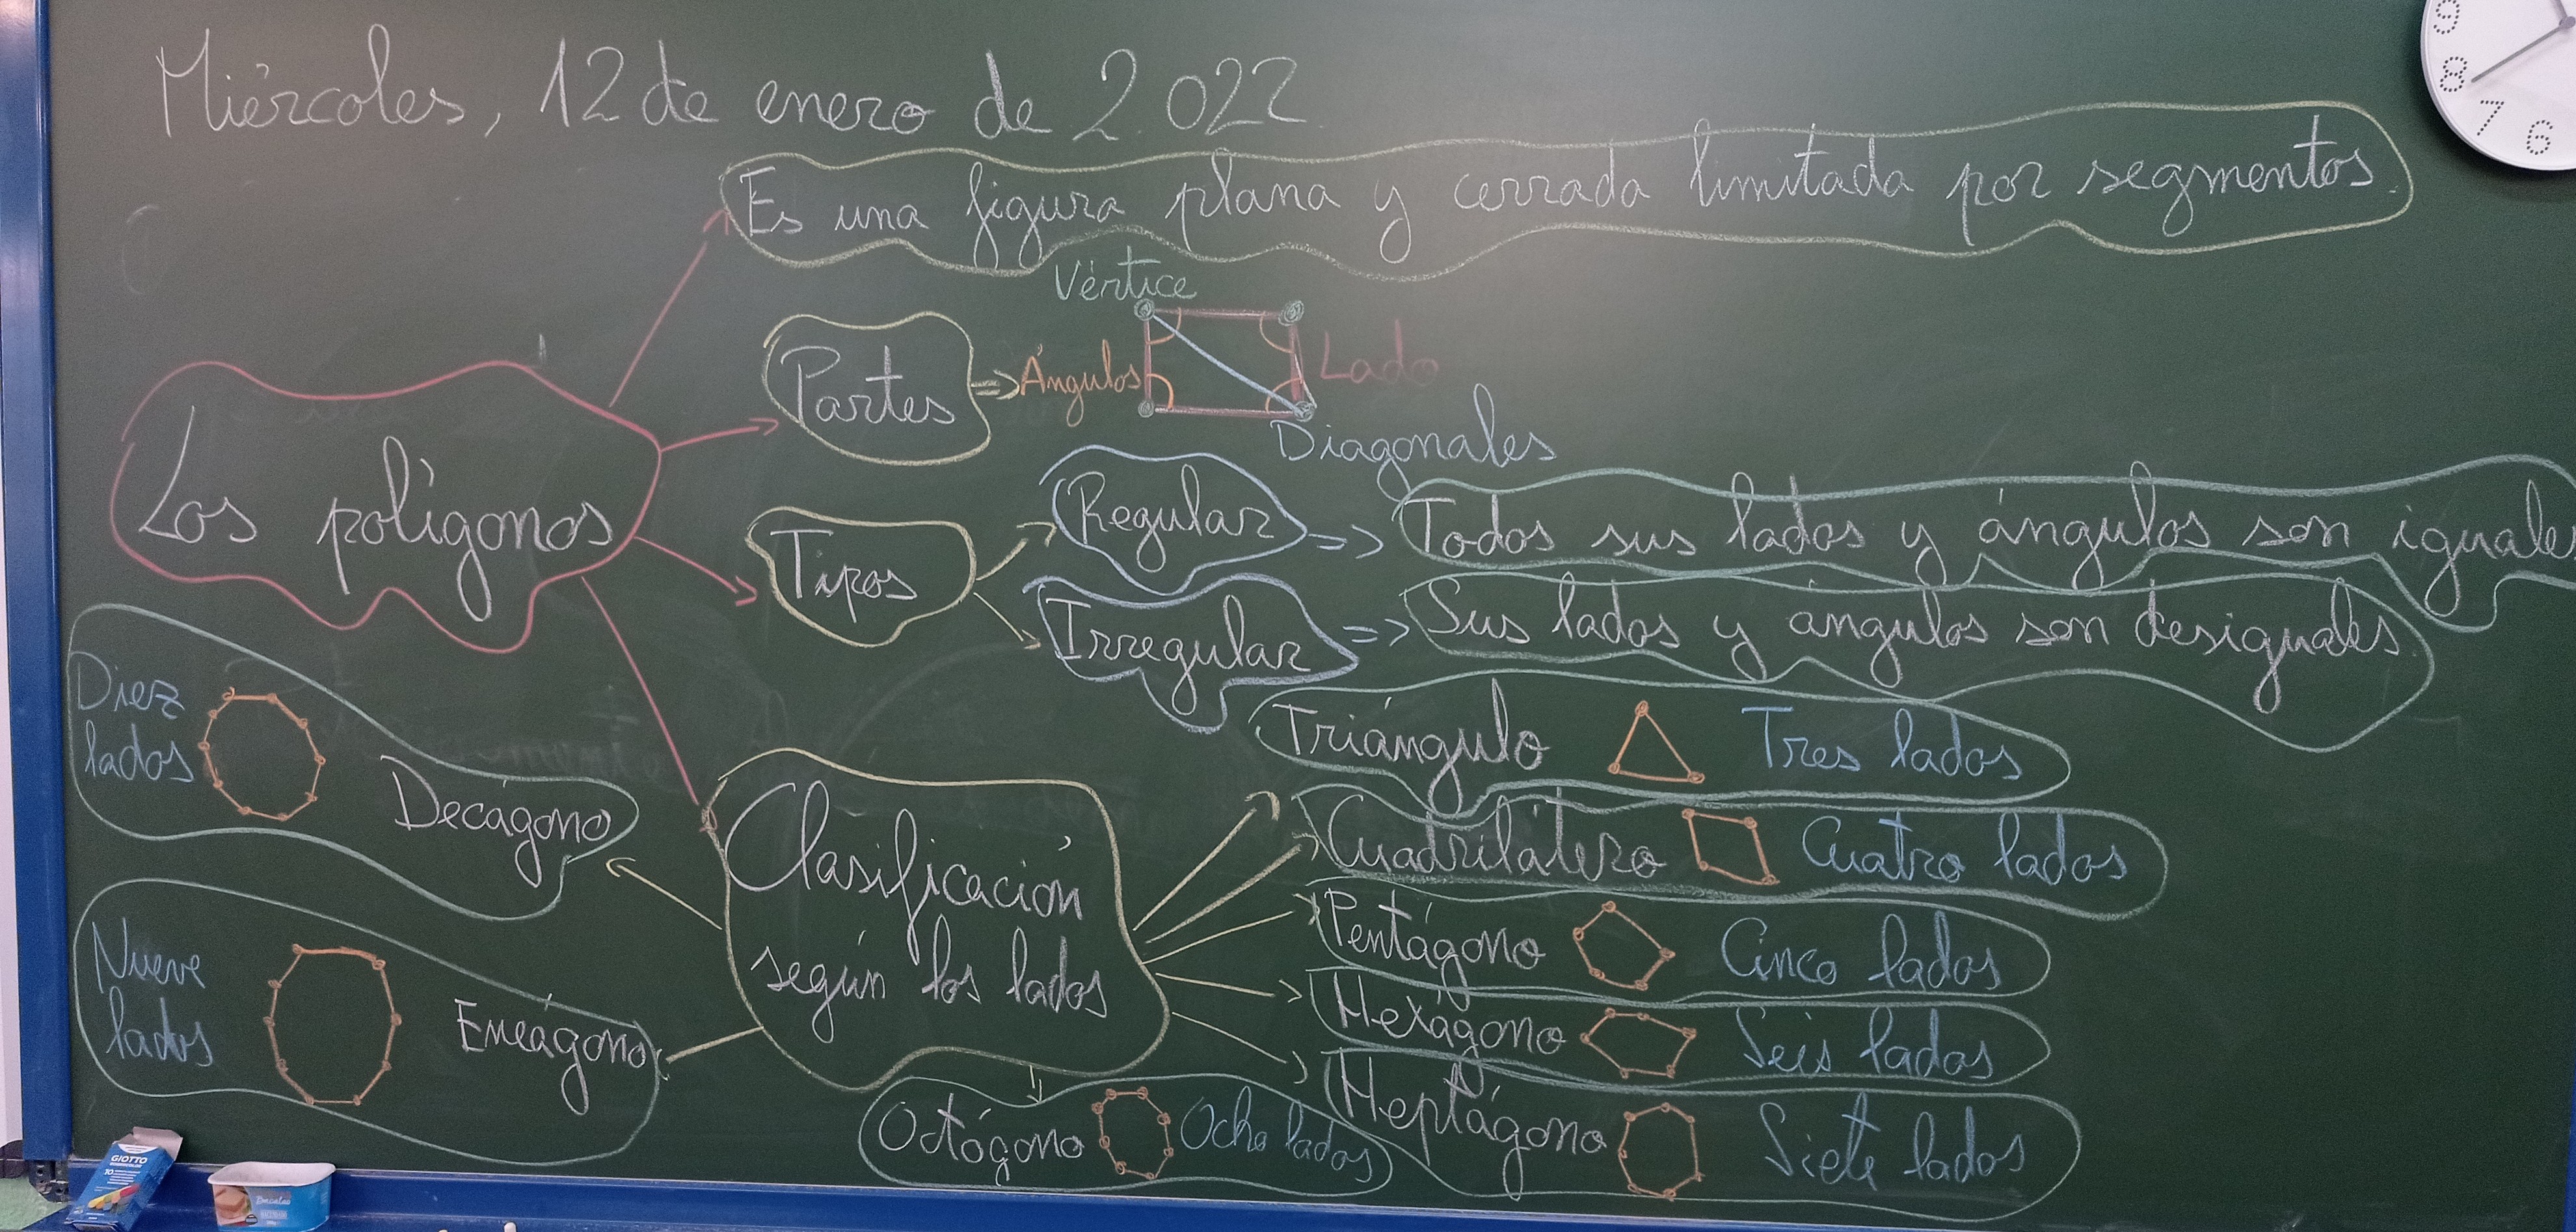 Miércoles, 12 de enero de 2.022
9
8
7
6
Es una figura plana y cerrada limitada por segmentos.
Vértice
Partes => Ángulos
Lado
Diagonales
Los polígonos
Tipos
Regular => Todos sus lados y ángulos son iguales
Irregular => Sus lados y ángulos son desiguales.
Clasificación
según los lados
Triángulo Tres lados
Cuadrilátero Cuatro lados
Pentágono Cinco lados
Hexágono Seis lados
Heptágono Siete lados
Octógono Ocho lados
Eneágono
Nueve
lados
Decágono
Diez
lados
GIOTTO